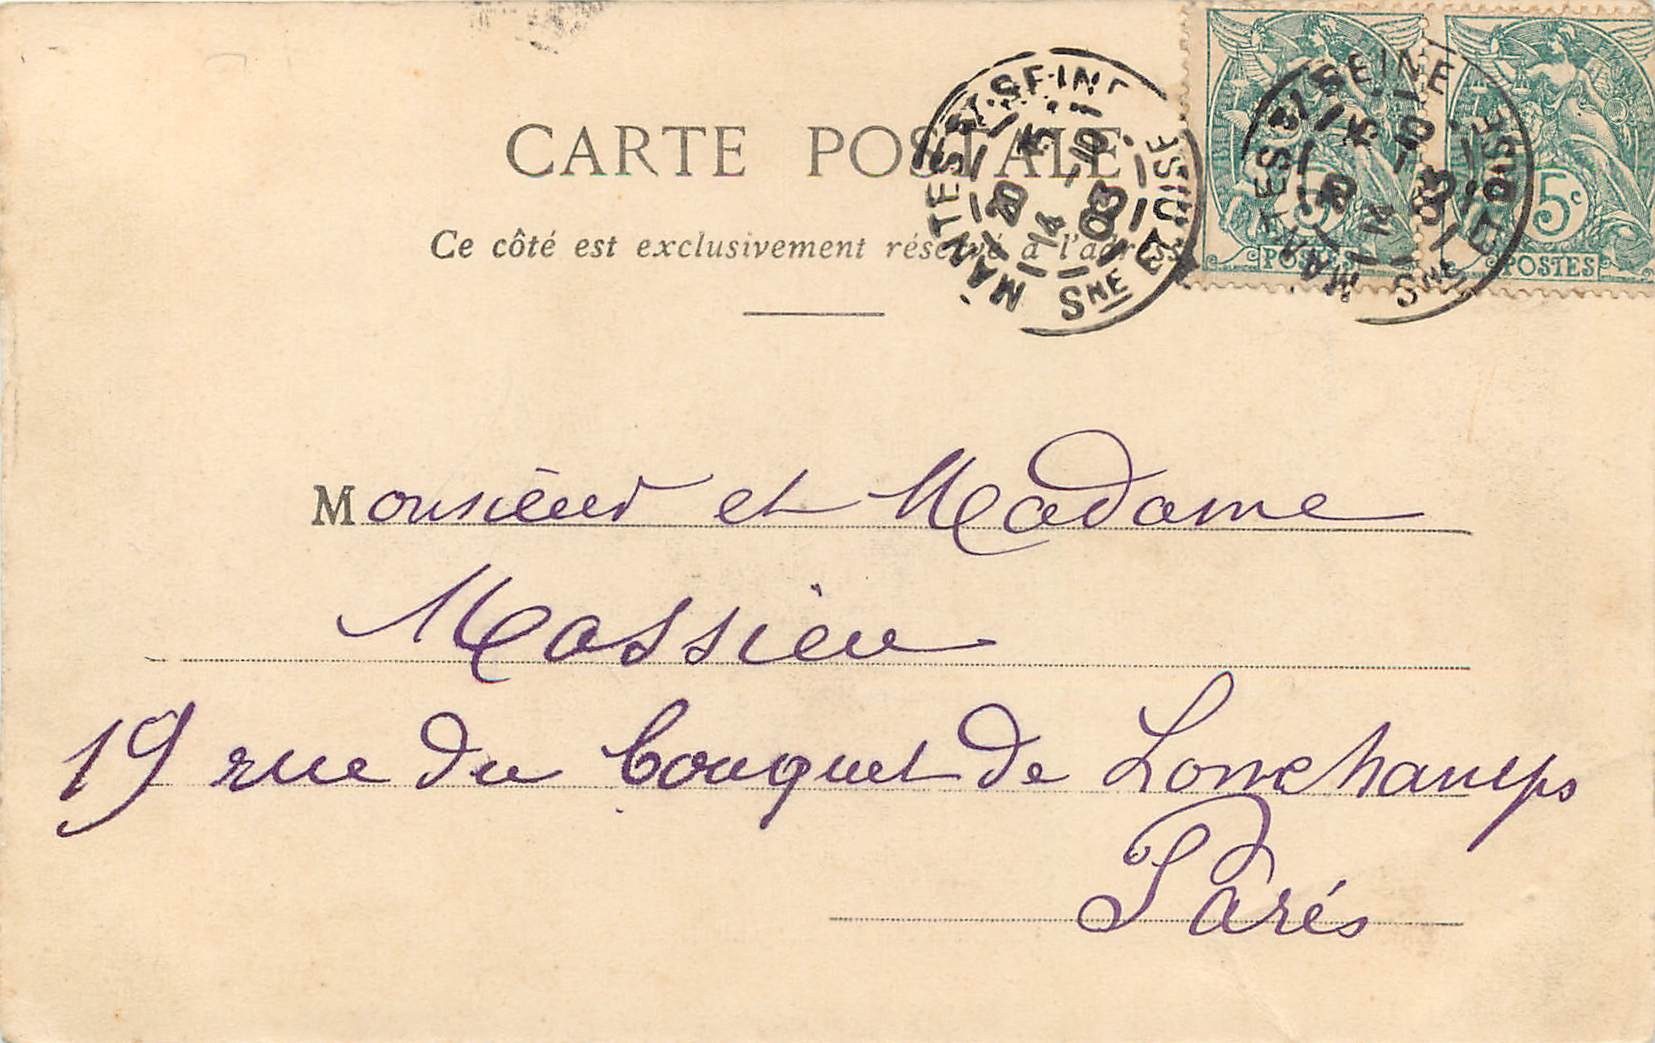 CARTE POSTALE
Ce côté est exclusivement réservé à l'adresse
MANTES S/ SEINE
15
20
-10
14
03
SNE ET OISE
MANTES S/ SEINE
15
20
-10
14
03
SNE ET OISE
POSTES
5c
POSTES
Monsieur et Madame
Massieu
19 rue du Bouquet de Lonchamps
Paris